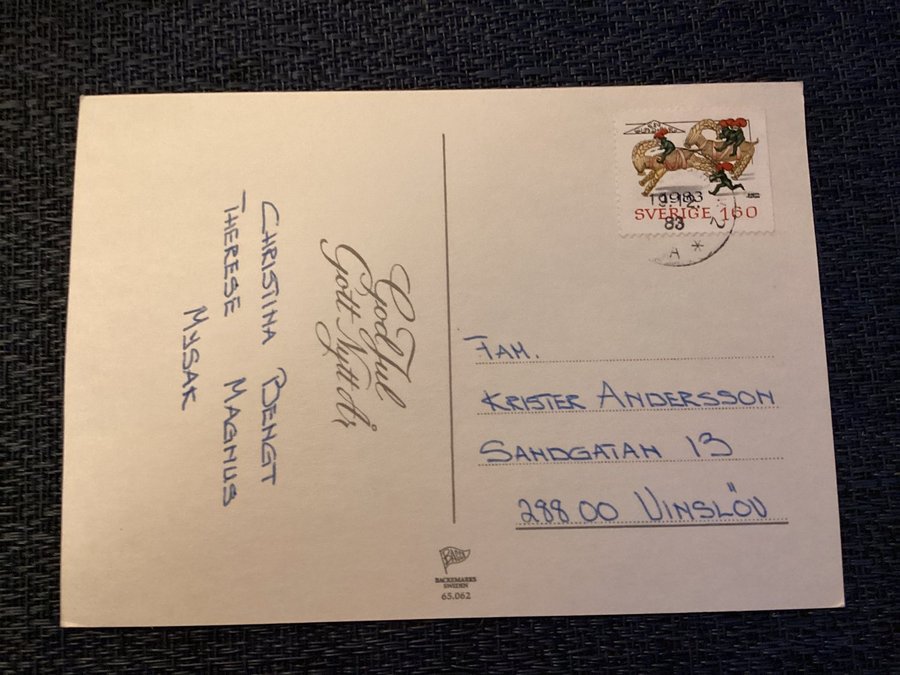 God Jul
Gott Nytt År
CHRISTINA BENGT
THERESE MAGNUS
MYSAK
SVERIGE 160
83
A *
FAM.
KRISTER ANDERSSON
SANDGATAN 13
288 00 VINSLÖV
BACKEMARKS
SWEDEN
65.062